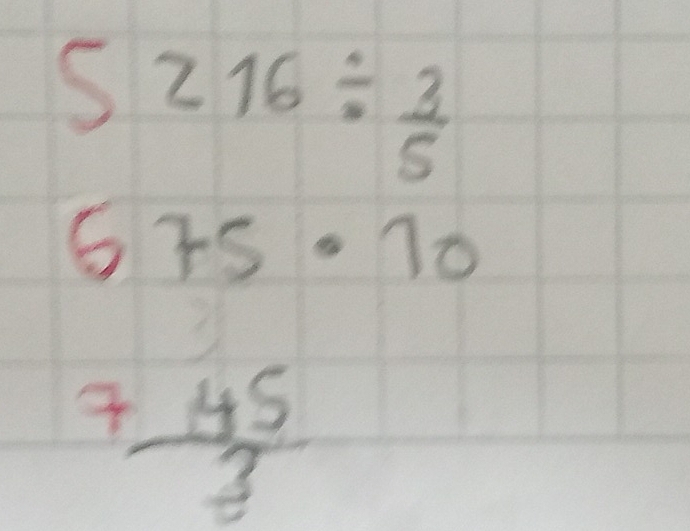 5 216 ÷ 2/5
6 75 • 10
7 45/2